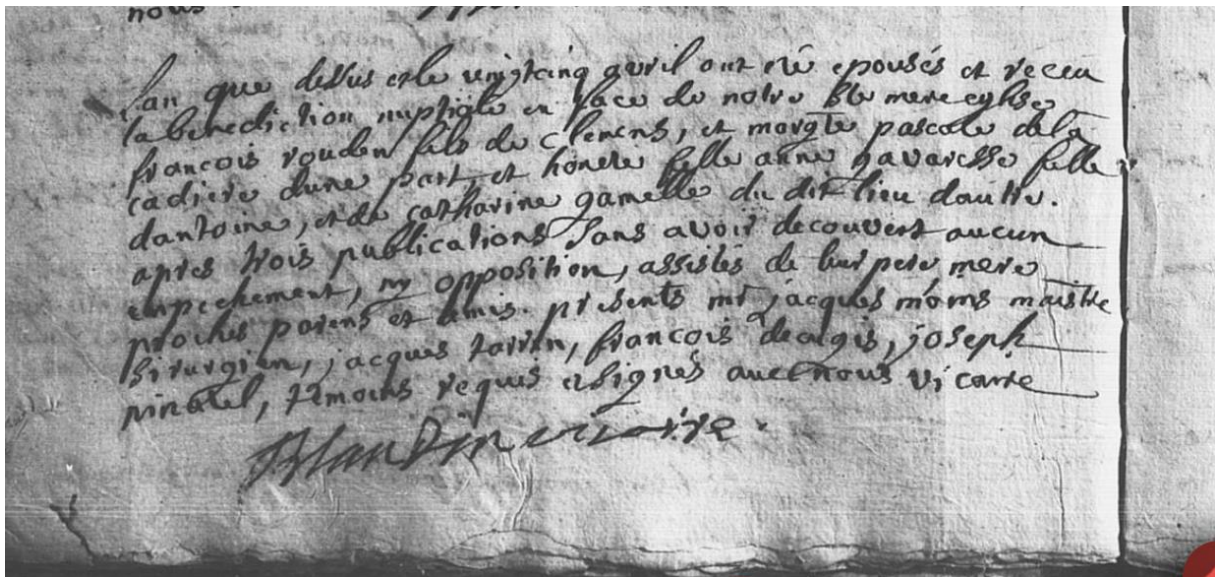 nous
lan que desus et le vingtcinq avril ont été epousés et receu
la benediction nuptiale en face de notre ste mere eglise
francois rouden fils de clemens, et margte pascale de la
cadiere dune part, et honete fille anne gavaresse fille
dantoine, et de catharine gamelle du dit lieu dautre.
apres trois publications sans avoir decouvert aucun
empechement, ny opposition, assistés de leur pere mere
proches parens et amis. presents mr jacques maistre
sirurgien, jacques tarrin, francois deagis, joseph
pinatel, temoins requis et signés avec nous vicaire
Blandin vicaire.